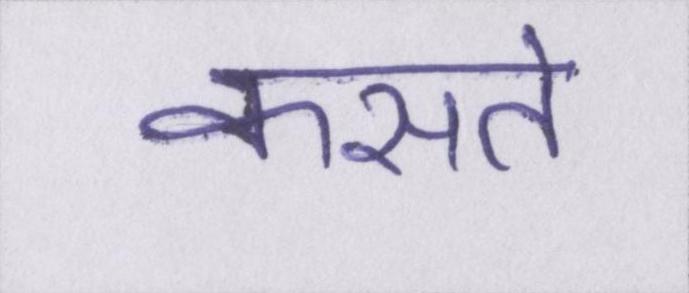 कसते